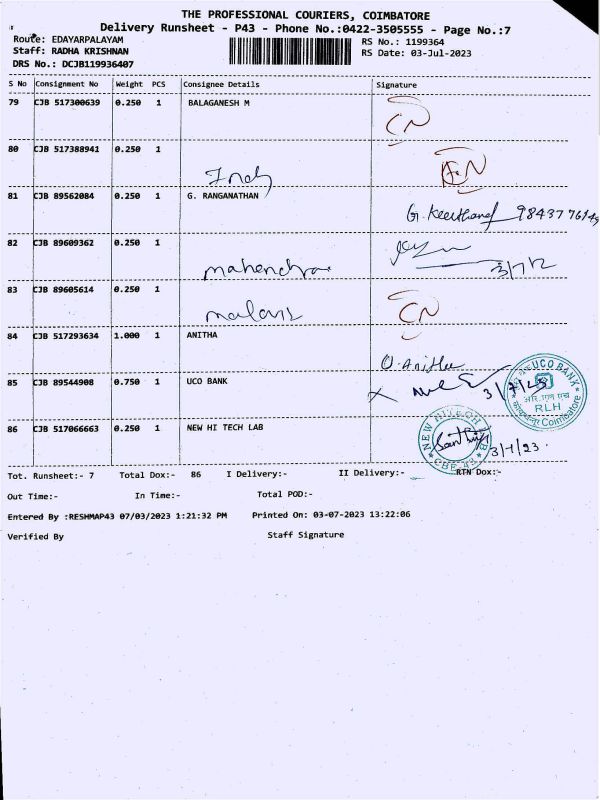 THE PROFESSIONAL COURIERS, COIMBATORE
Delivery Runsheet - P43 - Phone No.:0422-3505555 - Page No.:7
Route: EDAYARPALAYAM RS No.: 1199364
Staff: RADHA KRISHNAN RS Date: 03-Jul-2023
DRS No.: DCJB119936407
S No Consignment No Weight PCS Consignee Details Signature
79 CJB 517300639 0.250 1 BALAGANESH M CN
80 CJB 517388941 0.250 1
81 CJB 89562084 0.250 1 G. RANGANATHAN
82 CJB 89609362 0.250 1 mahendra 3/7/2
83 CJB 89605614 0.250 1 CN
84 CJB 517293634 1.000 1 ANITHA O. Anitha
85 CJB 89544908 0.750 1 UCO BANK 3/7/23
UCO BANK
RLH
Coimbatore
86 CJB 517066663 0.250 1 NEW HI TECH LAB 3/7/23.
NEW HITECH LAB
CBE-43
Tot. Runsheet:- 7 Total Dox:- 86 I Delivery:- II Delivery:- RTN Dox:-
Out Time:- In Time:- Total POD:-
Entered By :RESHMAP43 07/03/2023 1:21:32 PM Printed On: 03-07-2023 13:22:06
Verified By Staff Signature